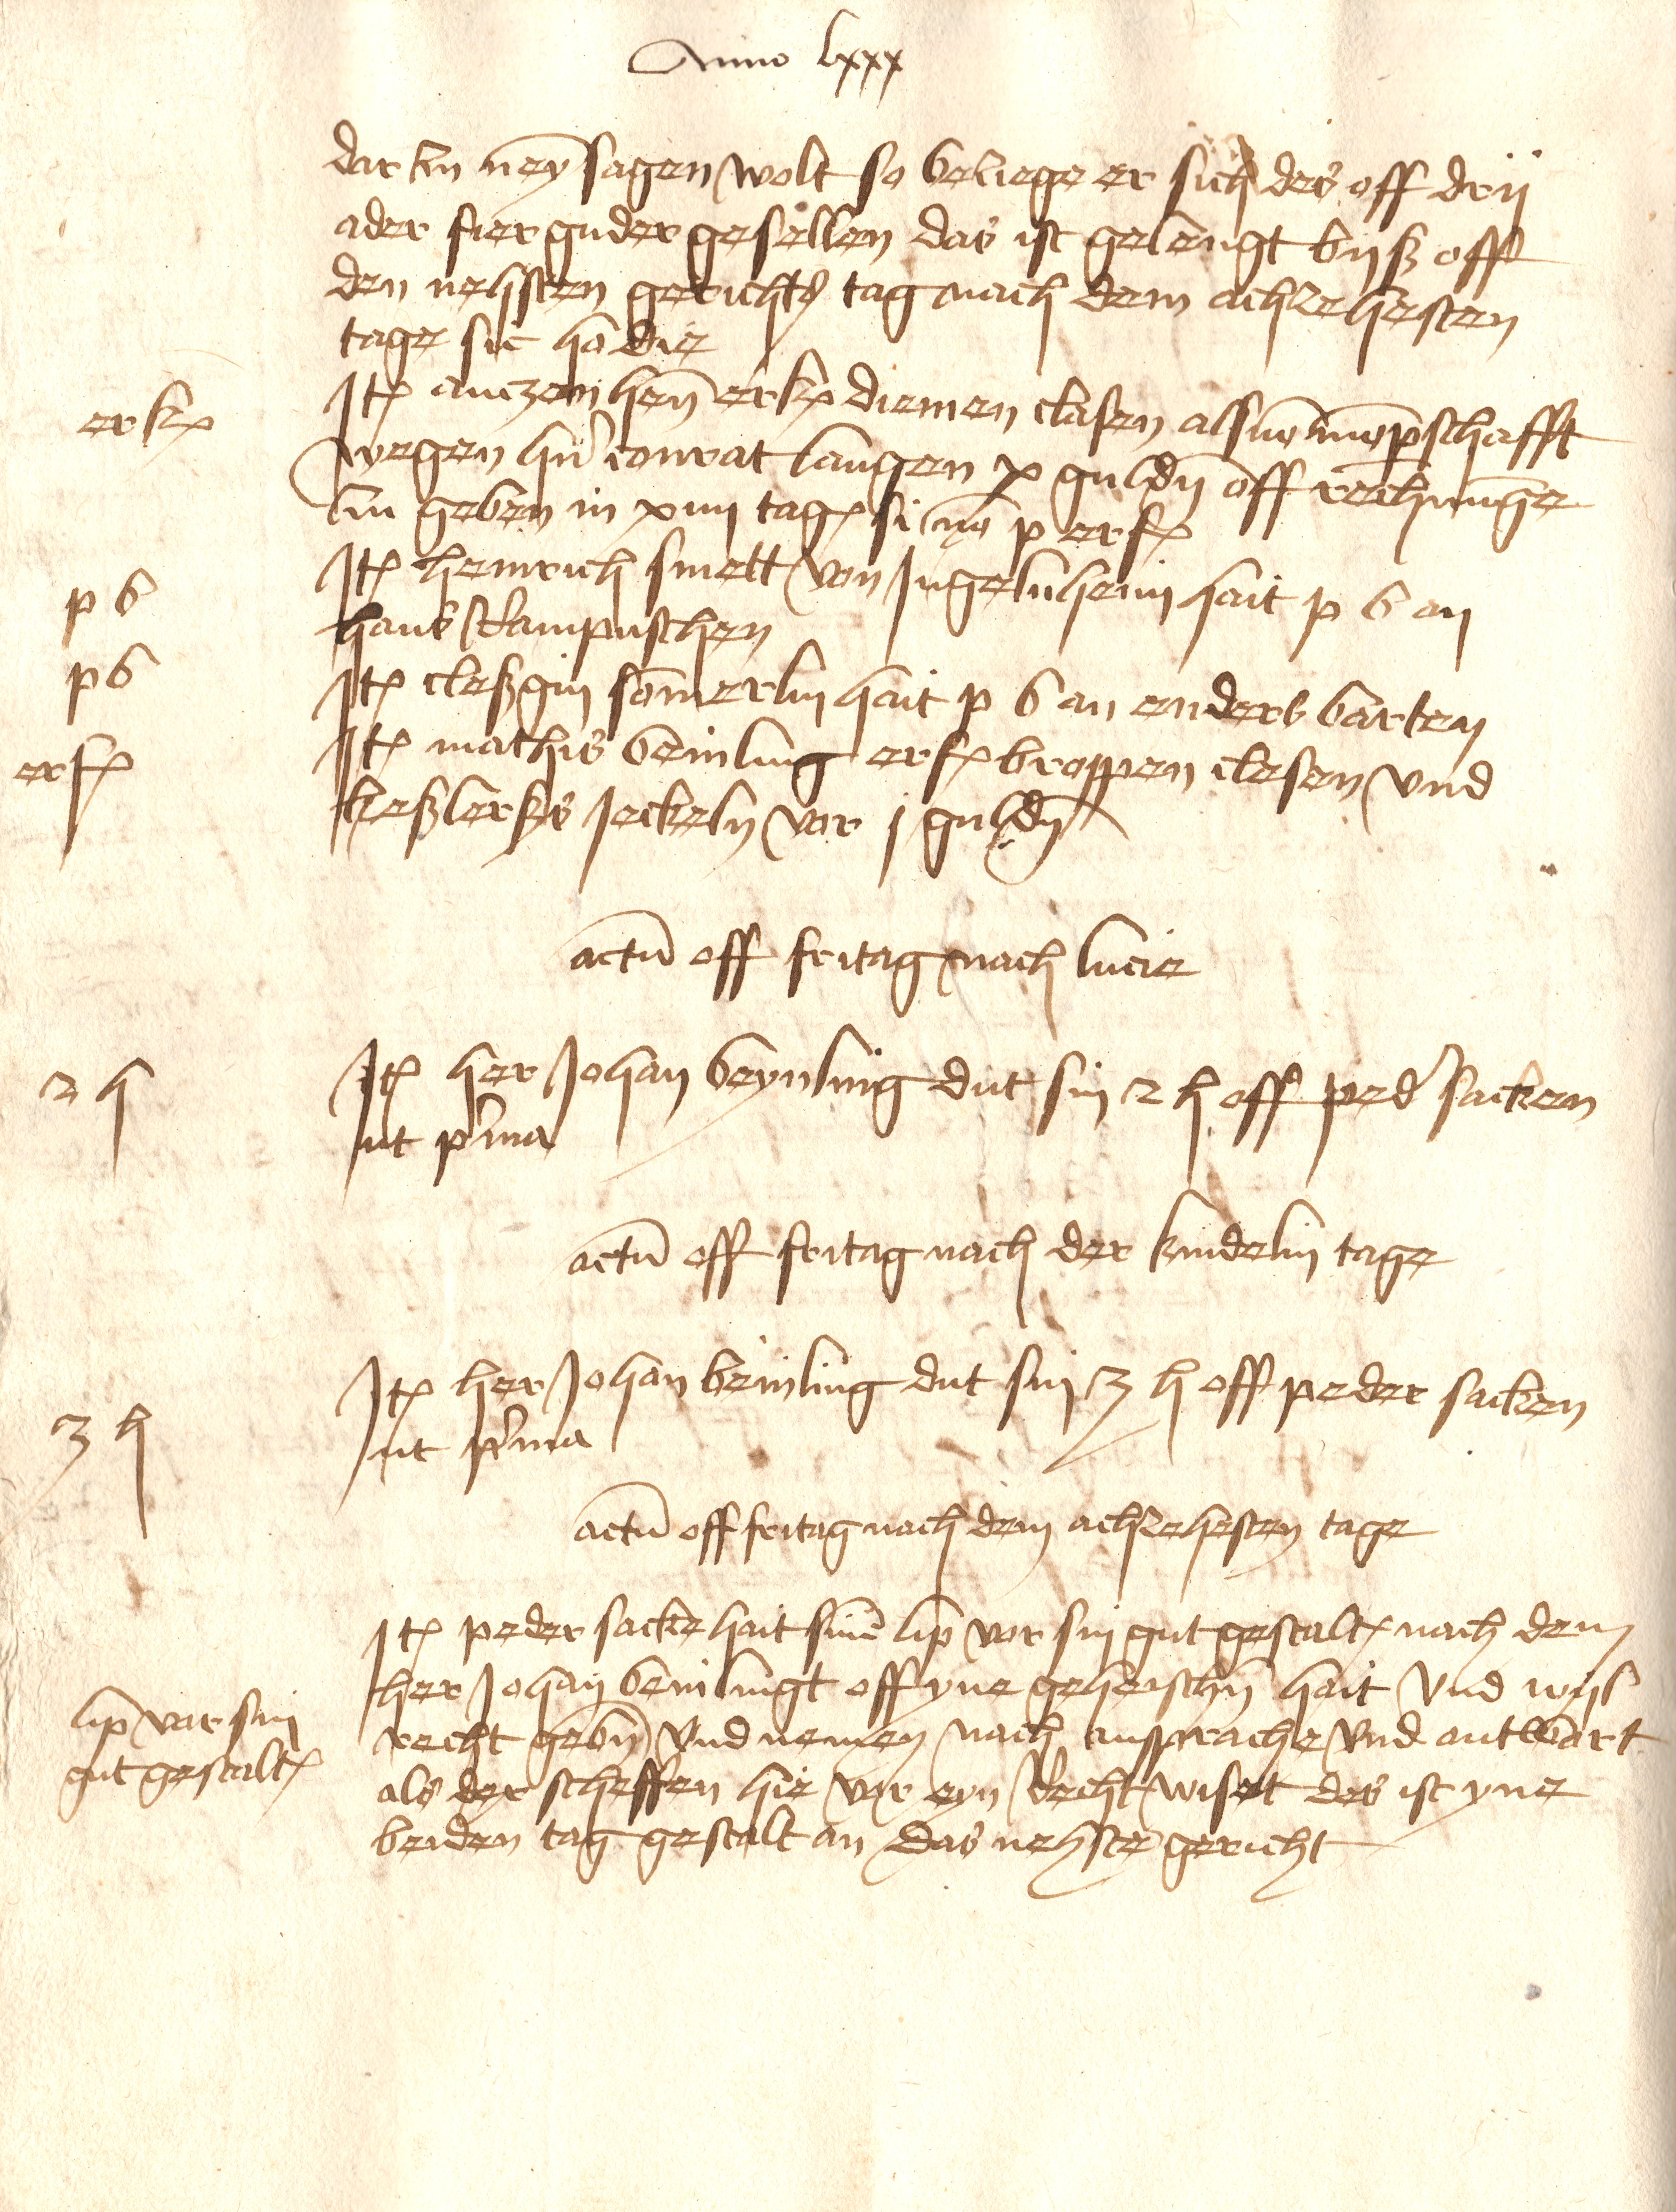 Anno lxxx
dar an neyn sagen wolt so beziege er sich des off drij
ader fier guder gesellen das ist gelengt bijß off
den nehsten gerichts tag nach dem achzehesten
tage sic hodie
erk
Itē anczen hen erkē diemen clasen als mōpschafft
wegen hern conrat langen x guldn off rechnunge
zu geben in xiiii tagē si nō p erfē
p b
Itē heinrich smett von Ingelnheim hait p b an
hans stampuschen
p b
Itē cleßgin somerlin hait p b an enders barten
erf
Itē mathis beinling erfē broppen clesen vnd
keßlerßs jeckeln vor j guldn
actū off fritag nach lucie
2 h
Itē her Johan beynling dut sin 2 h off ped' sacken
ut p'ma
actū off fritag nach der kindelin tage
3 h
Itē her Johan beinling dut sin 3 h off peder sacken
ut p'ma
actū off fritag nach dem achzehesten tage
Itē peder sacke hait sinē lip vor sin gut gestaltē nach dem
her Johan beinlingt off yne geheischn hait vnd wijl
lip vor sin
gut gestaltē
recht gebn vnd nemen nach ansprache vnd antwort
als der scheffen hie vor eyn recht wiset des ist yne
beiden tag gestalt an das nehste gericht